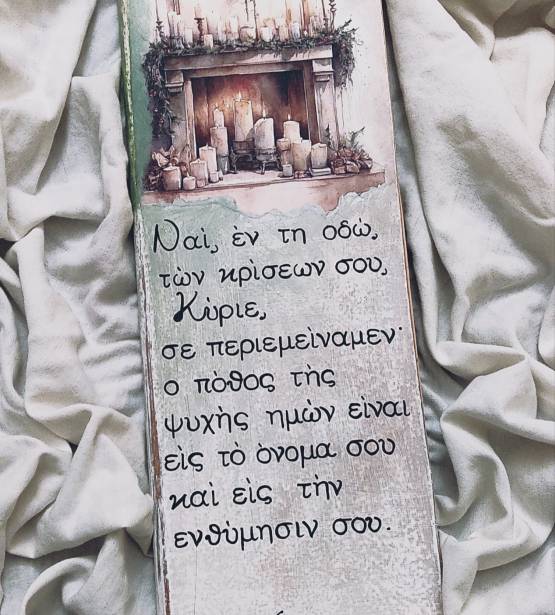 Ναὶ, ἐν τη οδώ,
τὼν κρὶσεων σου,
Κὺριε,
σε περιεμεὶναμεν·
ο πὸθος τὴς
ψυχὴς ημὼν εὶναι
εὶς τὸ ὸνομα σου
καὶ εὶς τὴν
ενθὺμησιν σου.